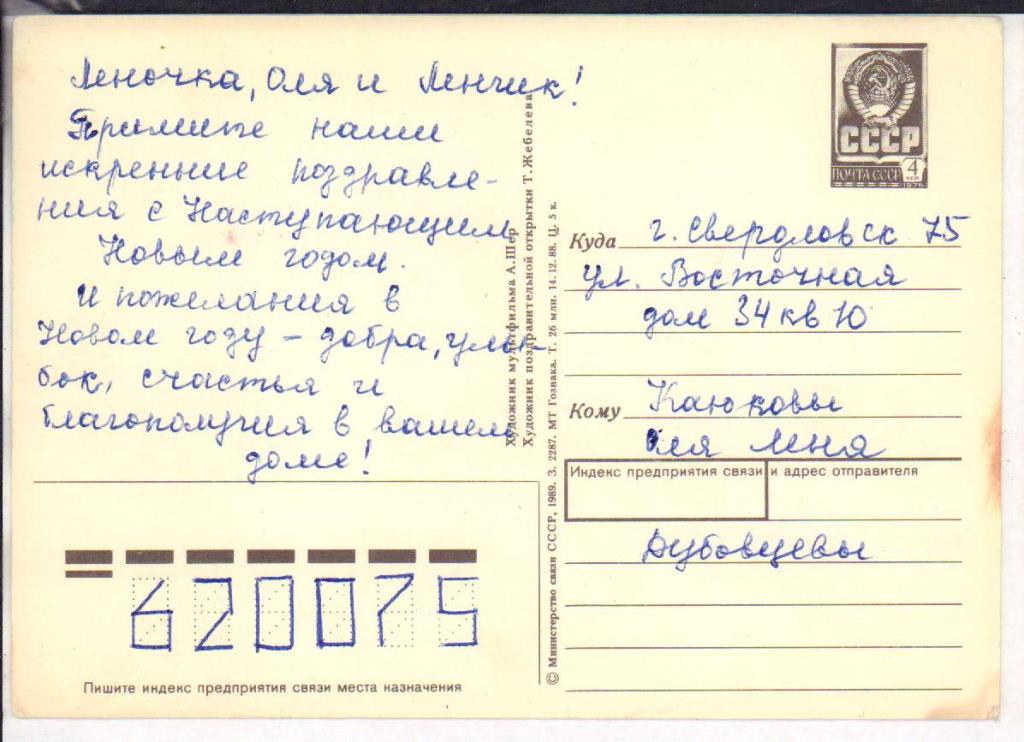 Леночка, Оля и Ленчик!
Примите наши
искренние поздравле-
ния с Наступающим
Новым годом.
И пожелания в
Новом году – добра, улы-
бок, счастья и
благополучия в вашем
доме!
620075
Пишите индекс предприятия связи места назначения
Художник мультфильма А. Шер
Художник поздравительной открытки Т. Жебелева
© Министерство связи СССР, 1989. З. 2287. МТ Гознака. Т. 26 млн. 14.12.88. Ц. 5 к.
СССР
ПОЧТА СССР 4 КОП
1976
Куда г. Свердловск 75
ул. Восточная
дом 34 кв 10
Кому Каюковы
Оля Леня
Индекс предприятия связи и адрес отправителя
Дубовцевы